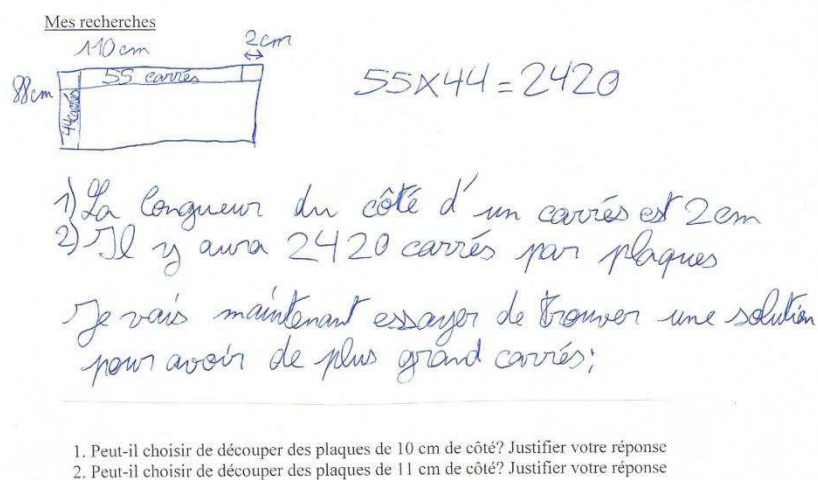 Mes recherches
110 cm
2cm
88cm
55 carrés
44 carrés
55x44 = 2420
1) La longueur du côté d'un carrés est 2cm
2) Il y aura 2420 carrés par plaques
Je vais maintenant essayer de trouver une solution
pour avoir de plus grand carrés;
1. Peut-il choisir de découper des plaques de 10 cm de côté? Justifier votre réponse
2. Peut-il choisir de découper des plaques de 11 cm de côté? Justifier votre réponse